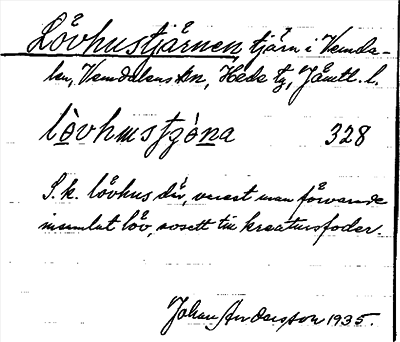 Lövhustjärnen, tjärn i Vemda-
len, Vemdalens sn, Hede tg, Jämtl. l.
lòvhusſʒò̱na 328
S.k. lövhus där, varest man förvarade
insamlat löv, avsett till kreatursfoder.
Johan Andersson 1935.